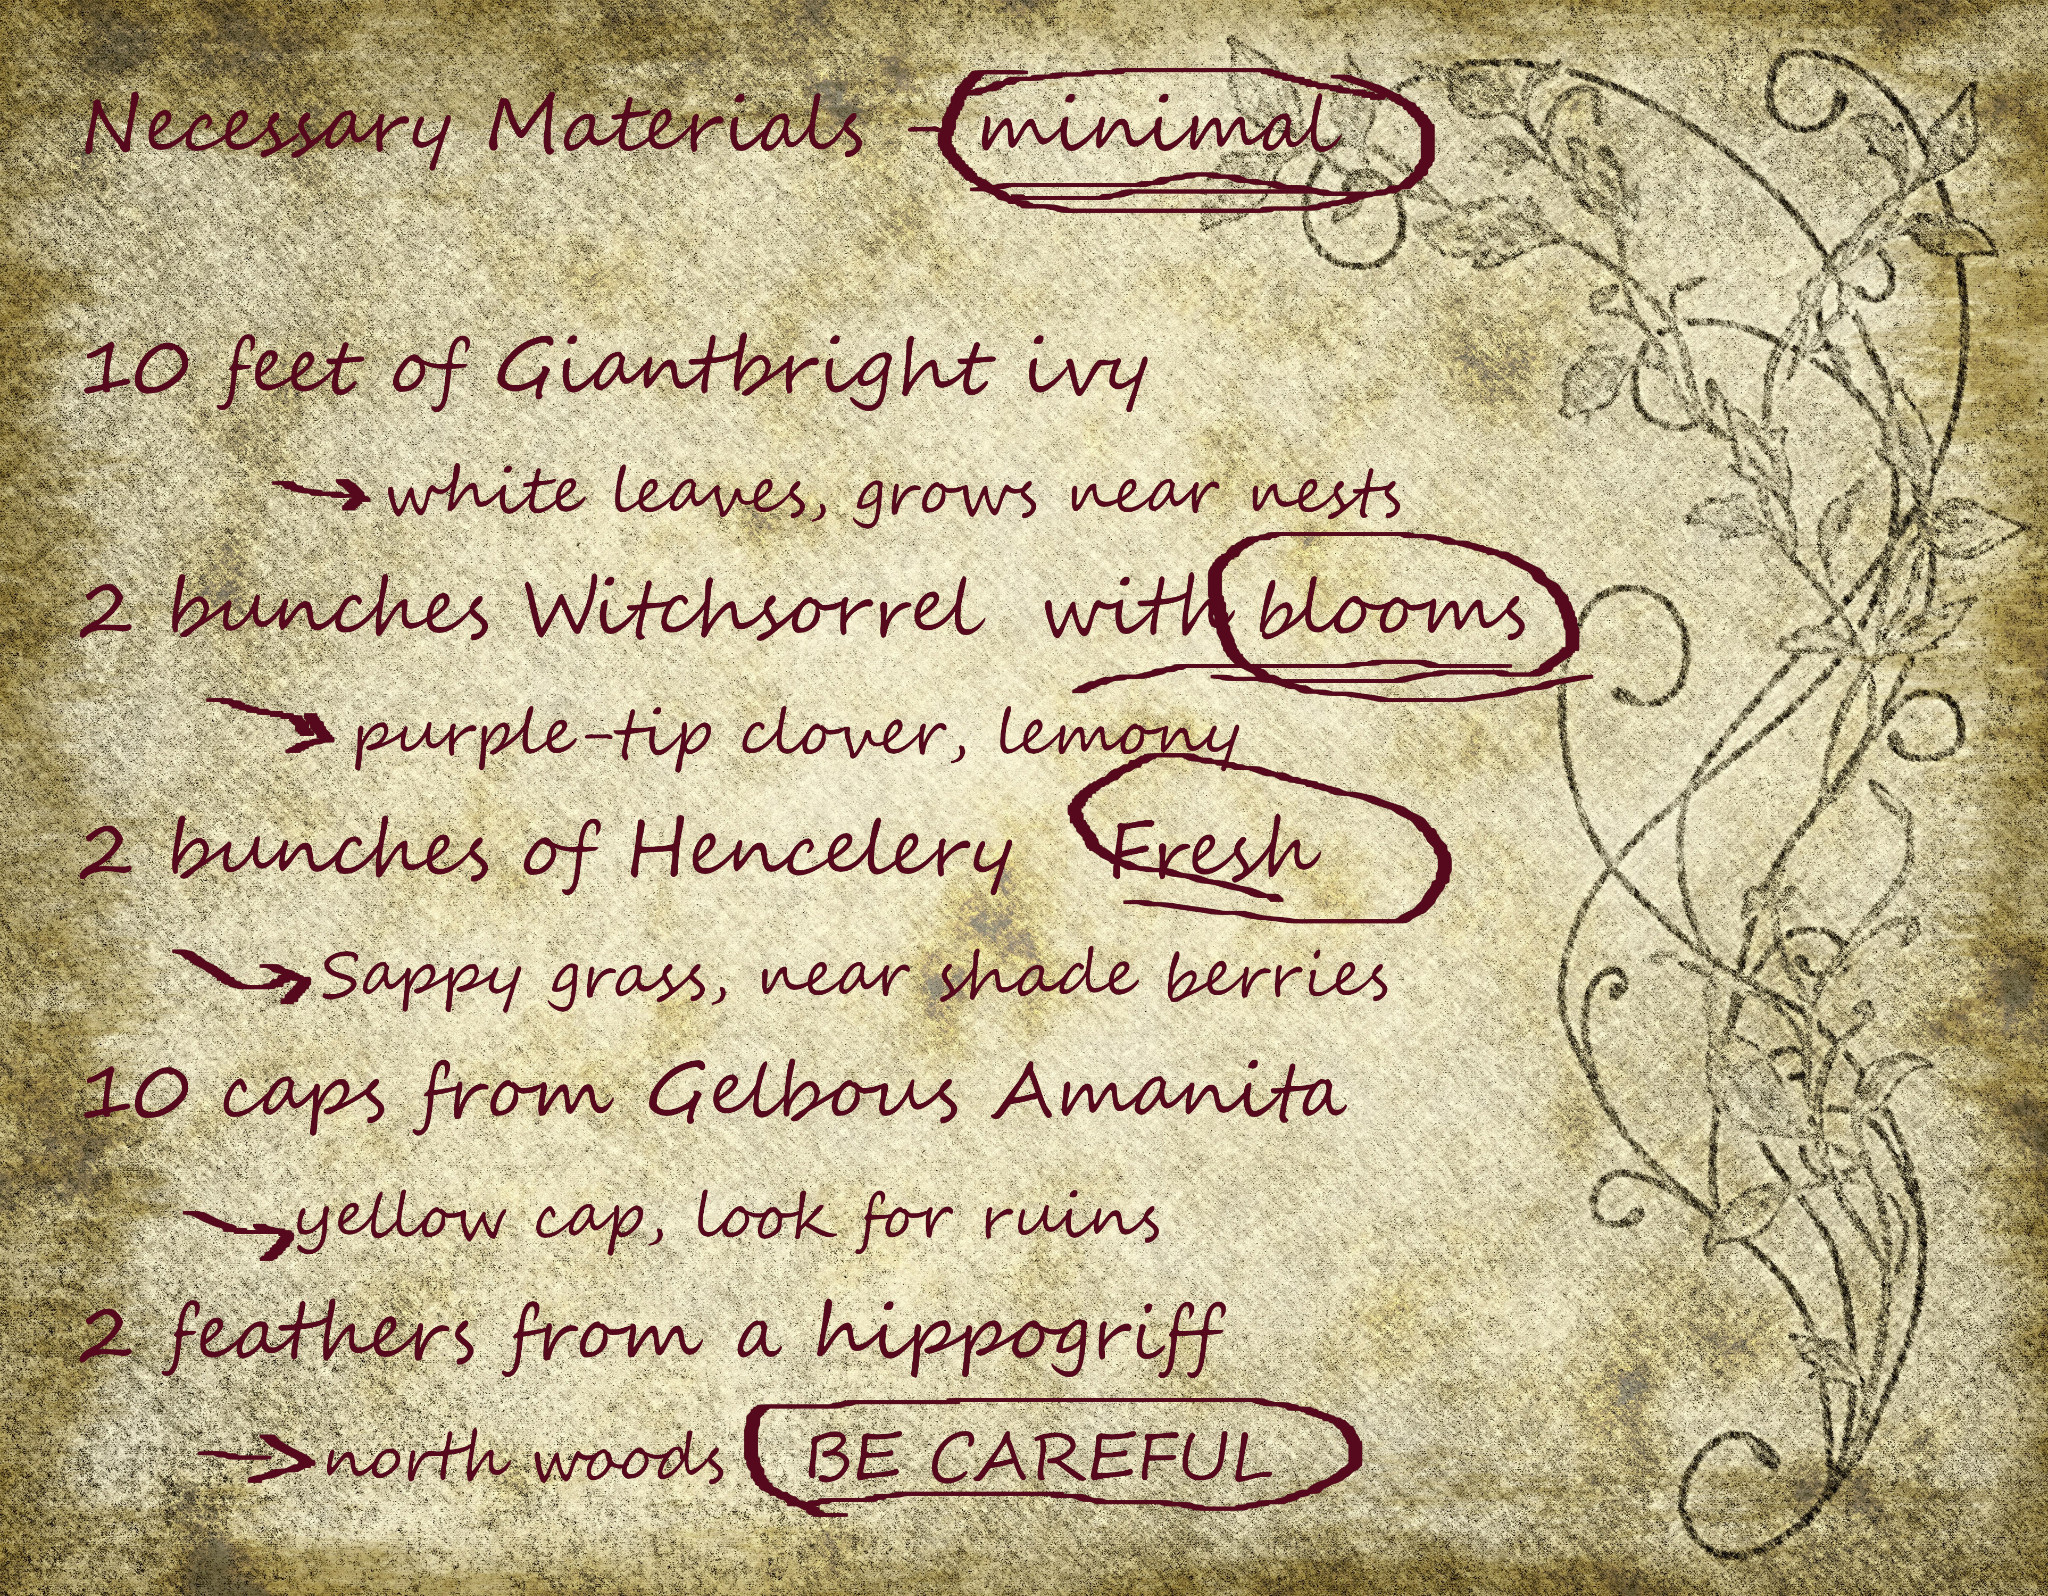 Necessary Materials - minimal
10 feet of Giantbright ivy
white leaves, grows near nests
2 bunches Witchsorrel with blooms
purple-tip clover, lemony
2 bunches of Hencelery Fresh
Sappy grass, near shade berries
10 caps from Gelbous Amanita
yellow cap, look for ruins
2 feathers from a hippogriff
north woods BE CAREFUL